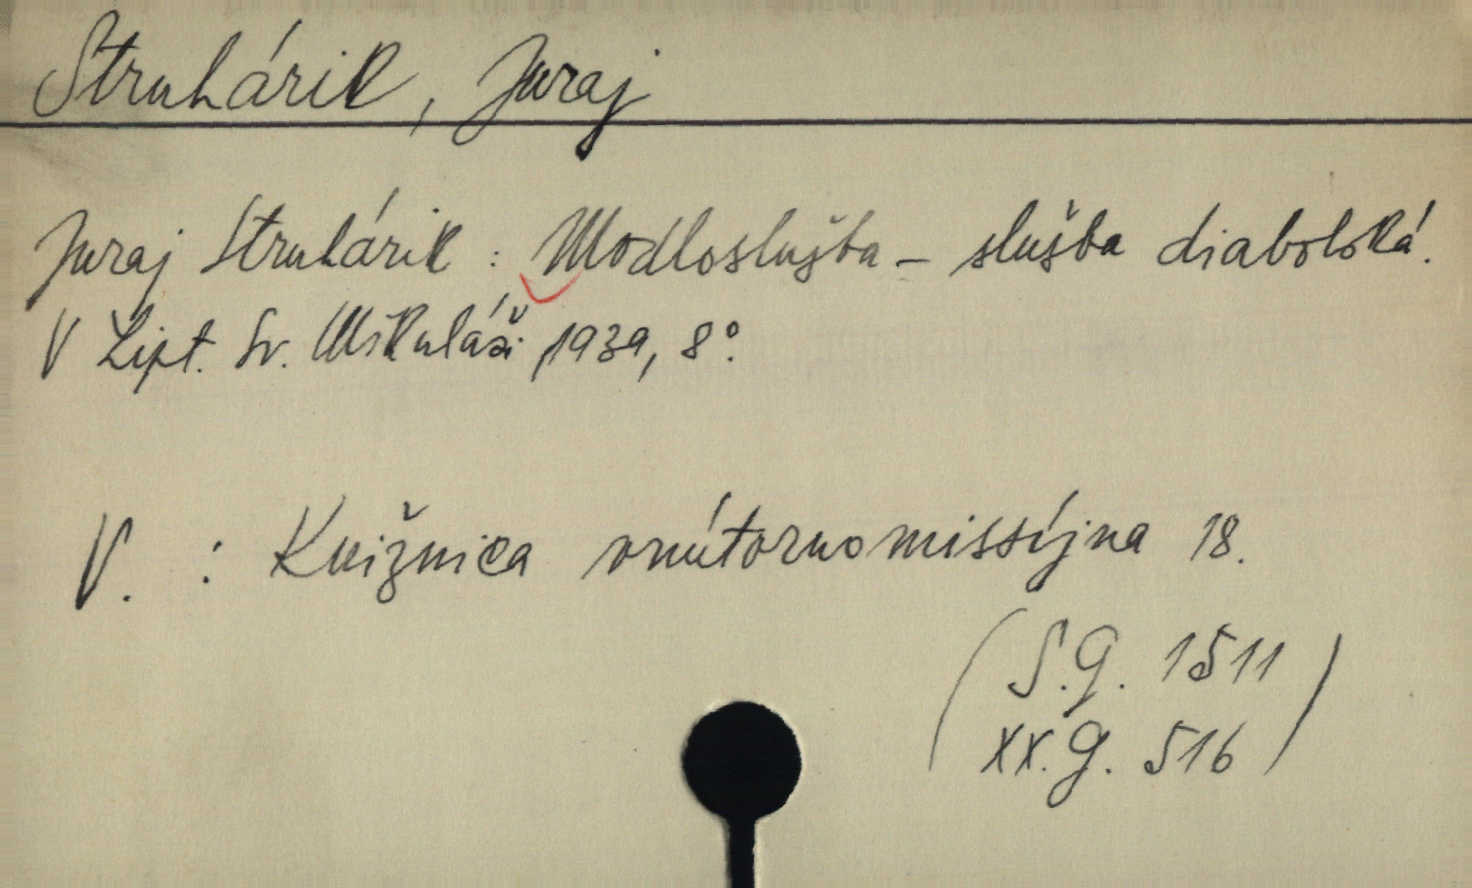 Struhárik, Juraj
Juraj Struhárik: Modloslužba - služba diabolská.
V Lipt. Sv. Mikuláši, 1939, 8°.
V. : Knižnica vnútornomissíjna 18.
(S.G. 1511
XX.G. 516)